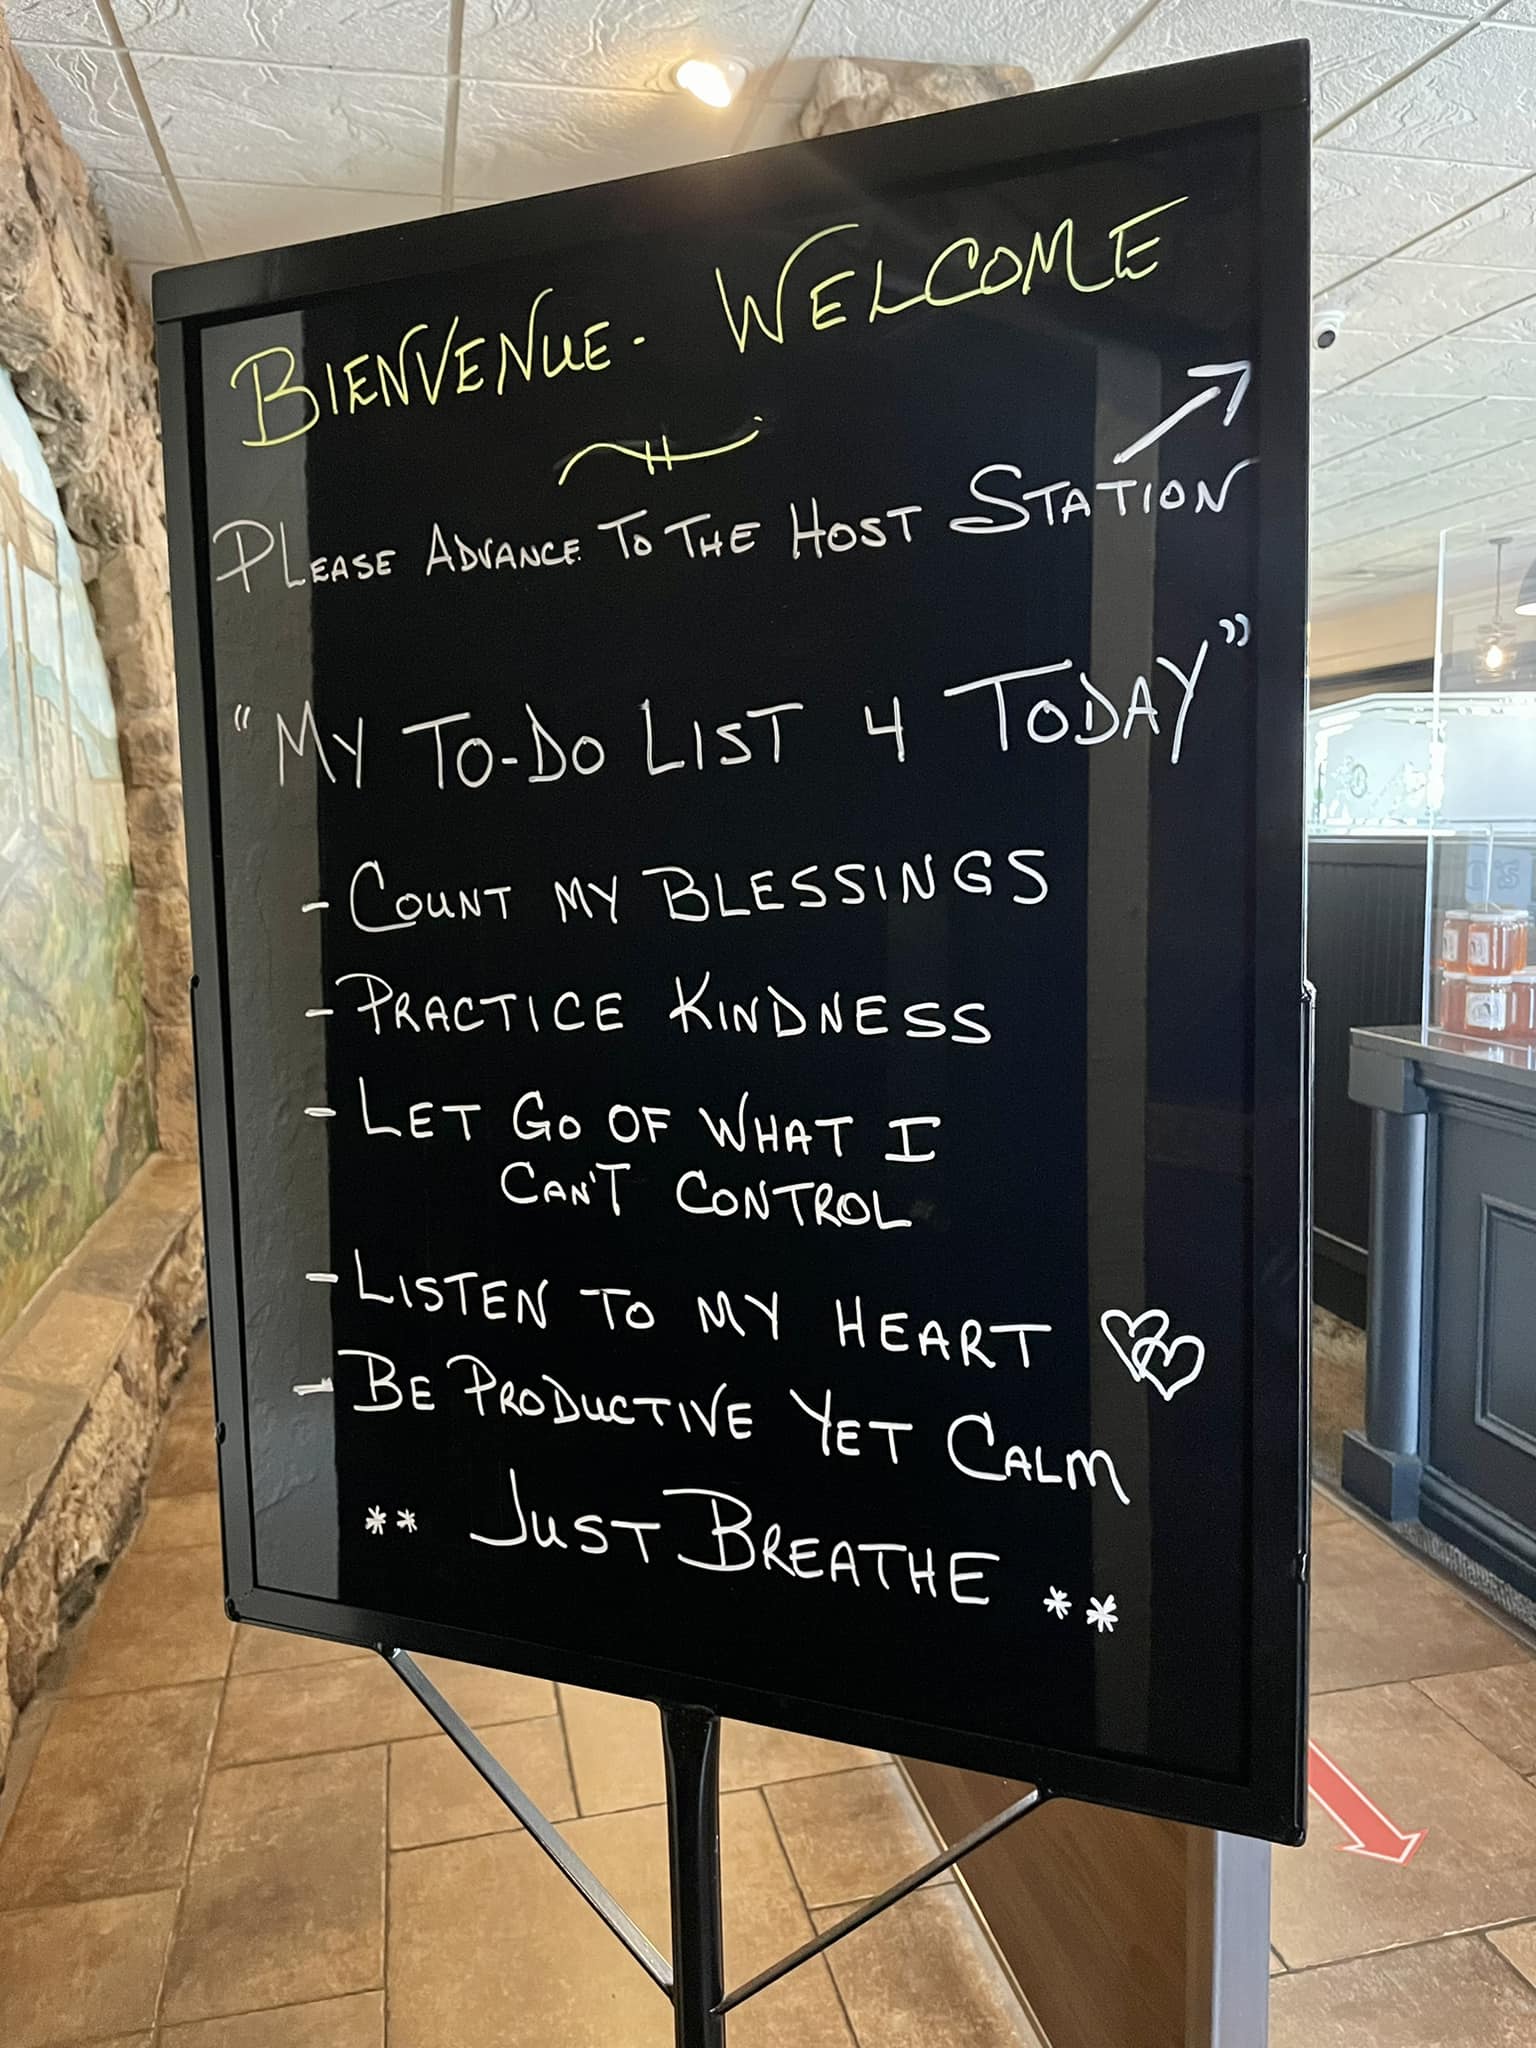 BIENVENUE - WELCOME
PLEASE ADVANCE TO THE HOST STATION
"MY TO-DO LIST 4 TODAY"
- COUNT MY BLESSINGS
- PRACTICE KINDNESS
- LET GO OF WHAT I
CAN'T CONTROL
- LISTEN TO MY HEART
- BE PRODUCTIVE YET CALM
** JUST BREATHE **